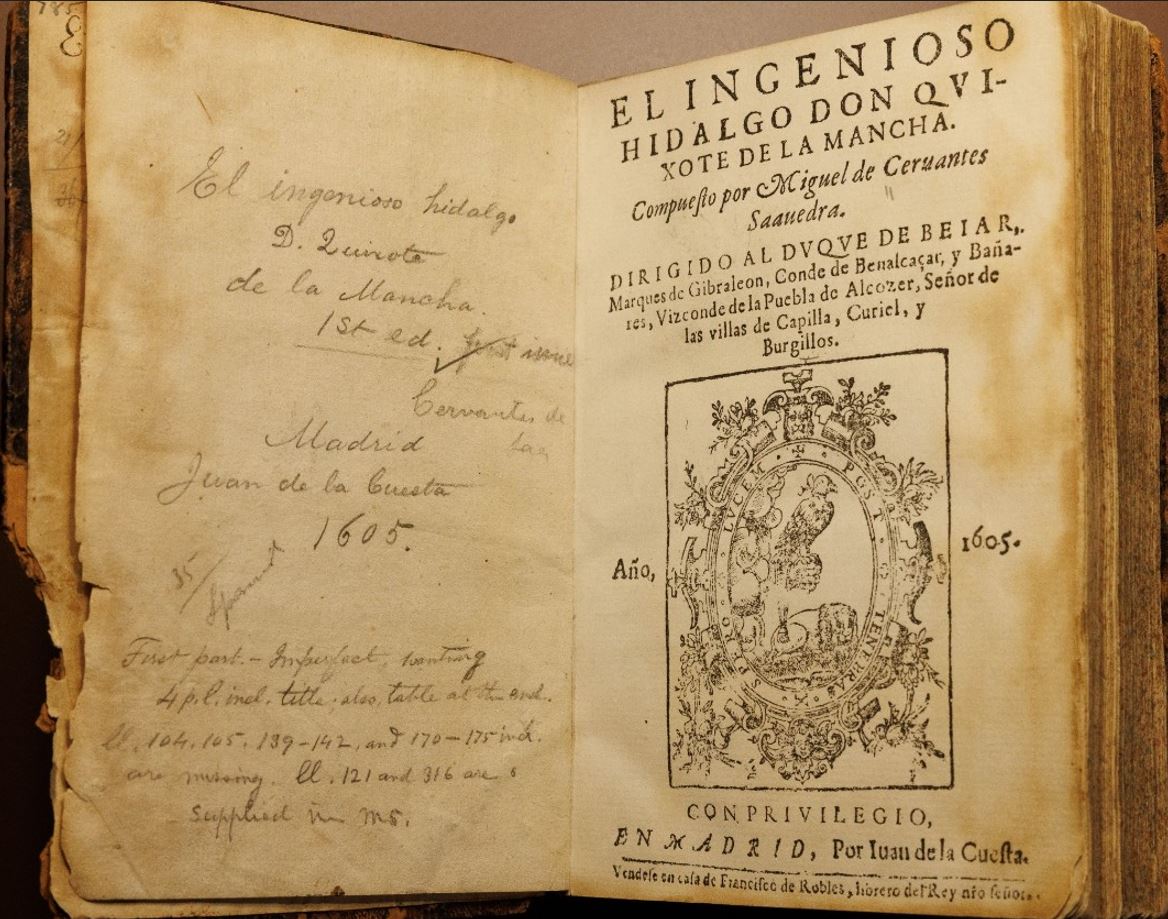 785
21/
36
El ingenioso hidalgo
D. Quixote
de la Mancha.
1st ed. first issue
Cervantes de
Saa
Madrid
Juan de la Cuesta
1605.
35/
Spanish
First part. – Imperfect, wanting
4 p. l. incl. title; also, table at the end.
ll. 104. 105. 139–142, and 170–175 incl.
are missing. ll. 121 and 316 are
supplied in ms.
EL INGENIOSO
HIDALGO DON QVI-
XOTE DE LA MANCHA.
Compueſto por Miguel de Ceruantes
Saauedra.
DIRIGIDO AL DVQVE DE BEIAR,
Marques de Gibraleon, Conde de Benalcaçar, y Baña-
res, Vizconde de la Puebla de Alcozer, Señor de
las villas de Capilla, Curiel, y
Burgillos.
POST TENEBRAS SPERO LVCEM
Año, 1605.
CON PRIVILEGIO,
EN MADRID, Por Iuan de la Cueſta.
Vendeſe en caſa de Franciſco de Robles, librero del Rey nr̃o ſeñor.